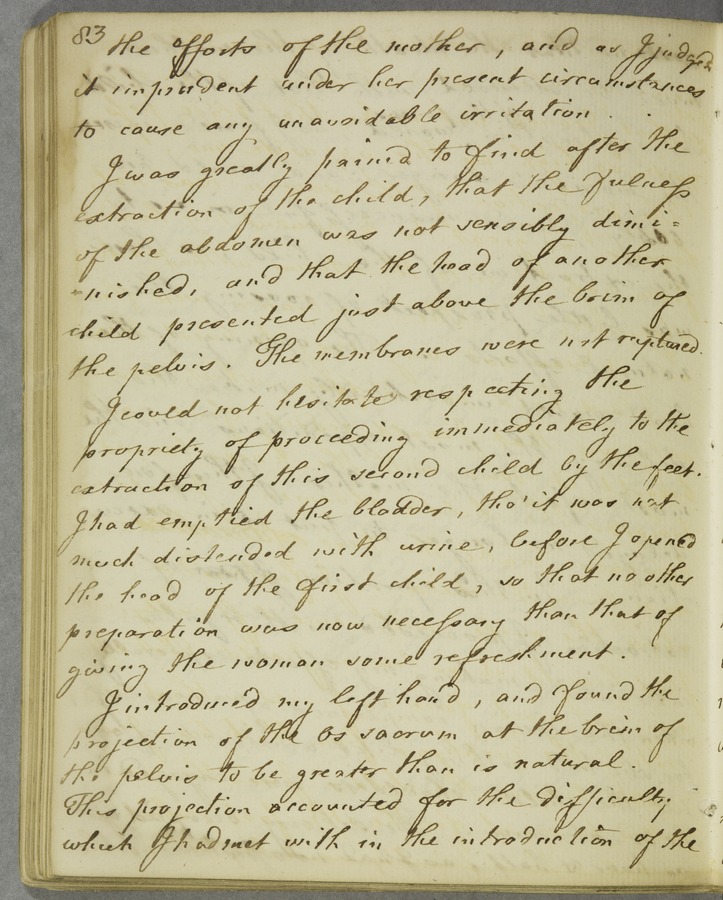 83
the efforts of the mother, and as I judged
it imprudent under her present circumstances
to cause any unavoidable irritation.
I was greatly pain'd to find after the
extraction of the child, that the fulness
of the abdomen was not sensibly dimi=
-nished, and that the head of another
child presented just above the brim of
the pelvis. The membranes were not ruptured.
I could not hesitate respecting the
propriety of proceeding immediately to the
extraction of this second child by the feet.
I had emptied the bladder, tho' it was not
much distended with urine, before I opened
the head of the first child, so that no other
preparation was now necessary than that of
giving the woman some refreshment.
I introduced my left hand, and found the
projection of the Os sacrum at the brim of
the pelvis to be greater than is natural.
This projection accounted for the difficulty
which I had met with in the introduction of the